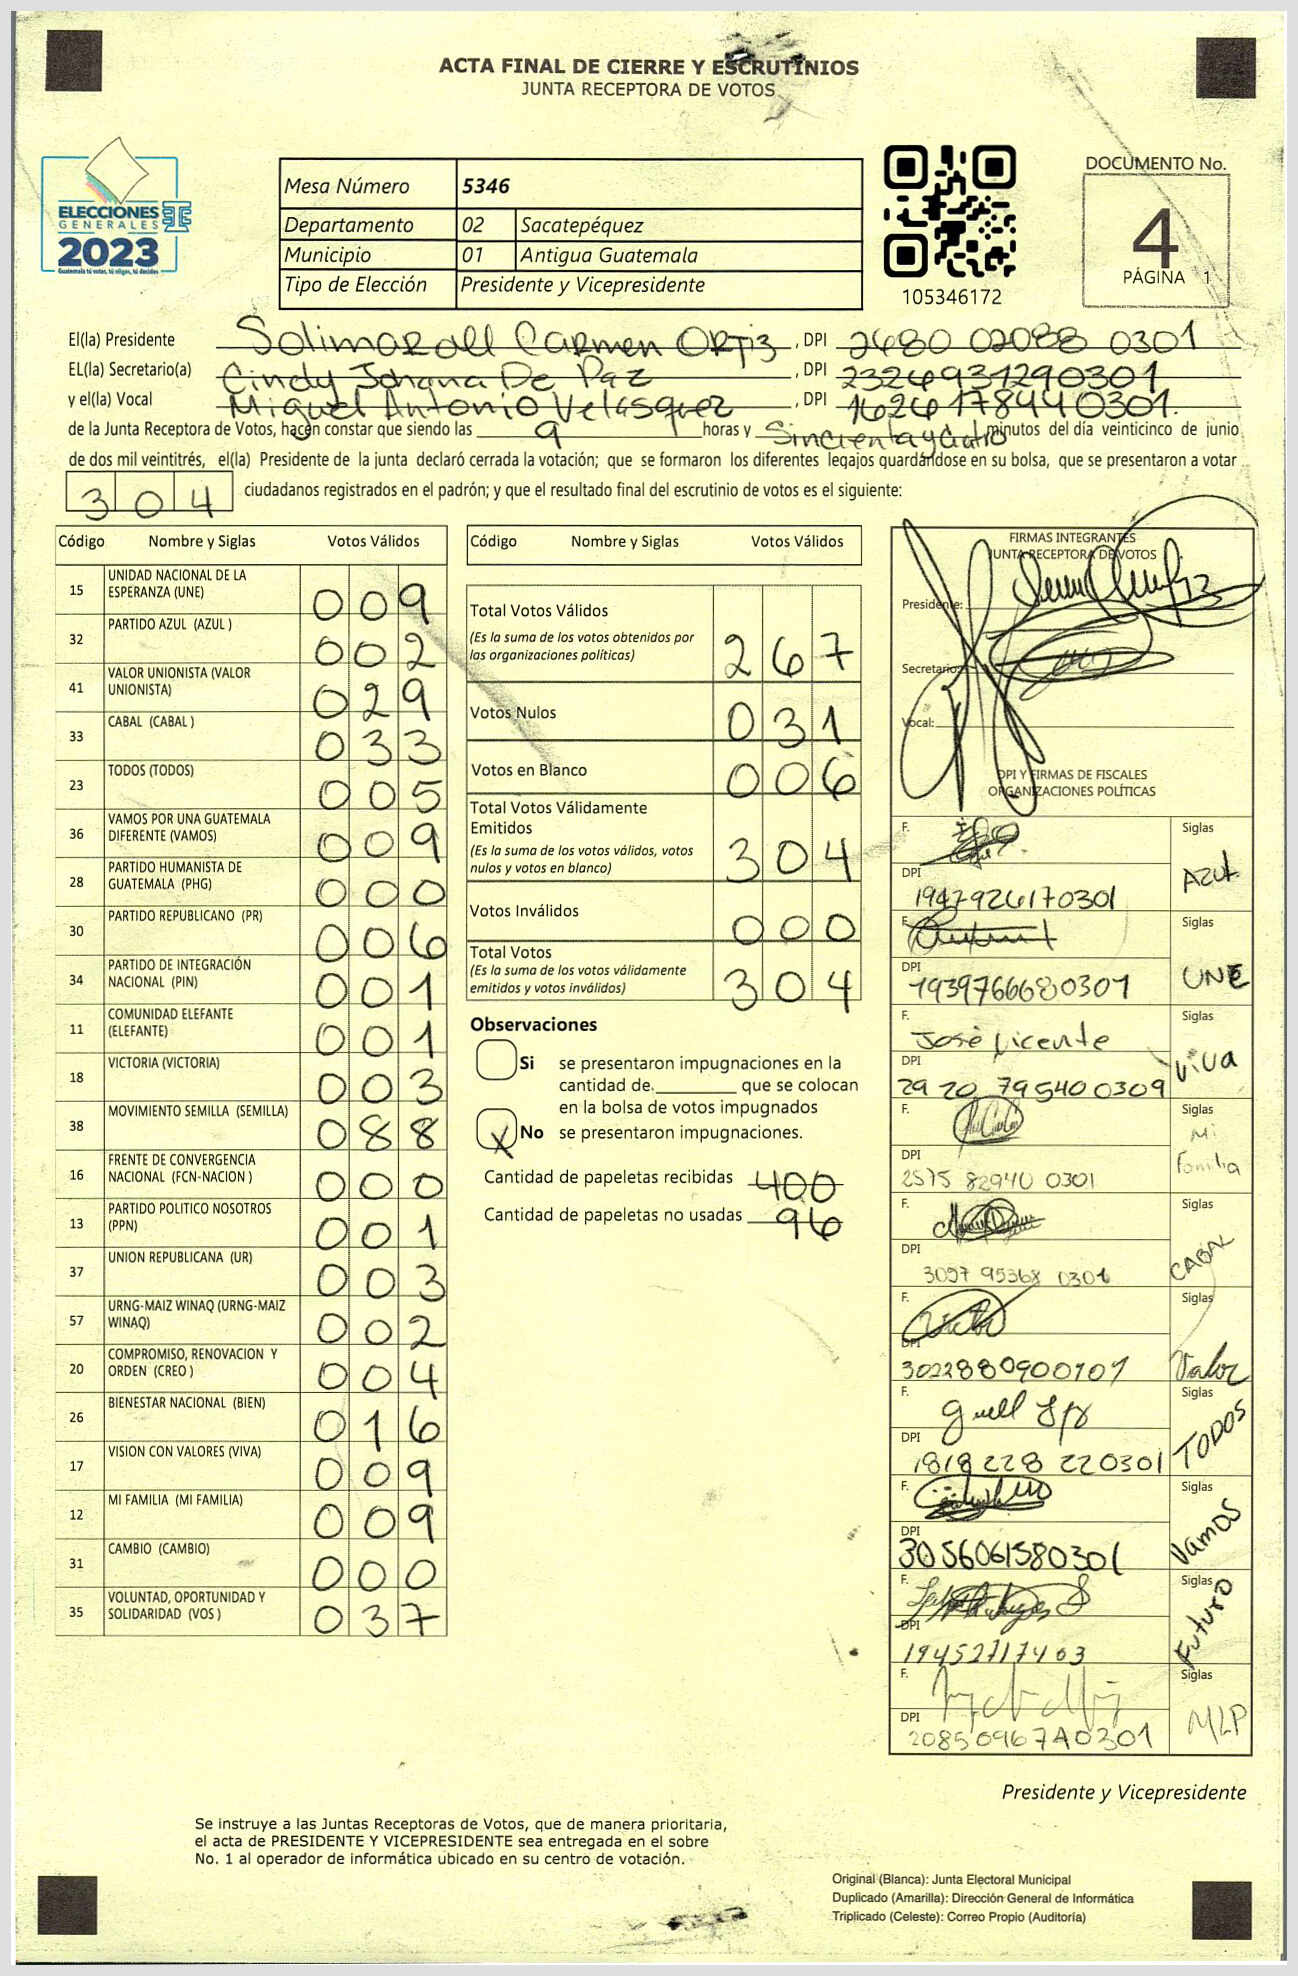 ACTA FINAL DE CIERRE Y ESCRUTINIOS
JUNTA RECEPTORA DE VOTOS
ELECCIONES
GENERALES
2023
Guatemala tú votas, tú eliges, tú decides
Mesa Número 5346
Departamento 02 Sacatepéquez
Municipio 01 Antigua Guatemala
Tipo de Elección Presidente y Vicepresidente
105346172
DOCUMENTO No.
4
PÁGINA 1
El(la) Presidente Carmen Ortiz, DPI 2480 02088 0301
EL(la) Secretario(a) Cindy Johana De Paz, DPI 2326931290301
y el(la) Vocal Miguel Antonio Velasquez, DPI
de la Junta Receptora de Votos, hacen constar que siendo las 9 horas y Sincientaycuatro minutos del día veinticinco de junio
de dos mil veintitrés, el(la) Presidente de la junta declaró cerrada la votación; que se formaron los diferentes legajos quardándose en su bolsa, que se presentaron a votar
304 ciudadanos registrados en el padrón; y que el resultado final del escrutinio de votos es el siguiente:
Código Nombre y Siglas Votos Válidos
15 UNIDAD NACIONAL DE LA ESPERANZA (UNE) 009
32 PARTIDO AZUL (AZUL ) 002
41 VALOR UNIONISTA (VALOR UNIONISTA) 029
33 CABAL (CABAL ) 033
23 TODOS (TODOS) 005
36 VAMOS POR UNA GUATEMALA DIFERENTE (VAMOS) 009
28 PARTIDO HUMANISTA DE GUATEMALA (PHG) 000
30 PARTIDO REPUBLICANO (PR) 006
34 PARTIDO DE INTEGRACIÓN NACIONAL (PIN) 001
11 COMUNIDAD ELEFANTE (ELEFANTE) 001
18 VICTORIA (VICTORIA) 003
38 MOVIMIENTO SEMILLA (SEMILLA) 088
16 FRENTE DE CONVERGENCIA NACIONAL (FCN-NACION ) 000
13 PARTIDO POLITICO NOSOTROS (PPN) 001
37 UNION REPUBLICANA (UR) 003
57 URNG-MAIZ WINAQ (URNG-MAIZ WINAQ) 002
20 COMPROMISO, RENOVACION Y ORDEN (CREO ) 004
26 BIENESTAR NACIONAL (BIEN) 016
17 VISION CON VALORES (VIVA) 009
12 MI FAMILIA (MI FAMILIA) 009
31 CAMBIO (CAMBIO) 000
35 VOLUNTAD, OPORTUNIDAD Y SOLIDARIDAD (VOS ) 037
Código Nombre y Siglas Votos Válidos
Total Votos Válidos
(Es la suma de los votos obtenidos por
las organizaciones políticas) 267
Votos Nulos 031
Votos en Blanco 006
Total Votos Válidamente
Emitidos
(Es la suma de los votos válidos, votos
nulos y votos en blanco) 304
Votos Inválidos 000
Total Votos
(Es la suma de los votos válidamente
emitidos y votos inválidos) 304
Observaciones
Si se presentaron impugnaciones en la
cantidad de. que se colocan
en la bolsa de votos impugnados
X No se presentaron impugnaciones.
Cantidad de papeletas recibidas 400
Cantidad de papeletas no usadas 96
FIRMAS INTEGRANTES
JUNTA RECEPTORA DE VOTOS
Presidente:
Secretario:
Vocal:
DPI Y FIRMAS DE FISCALES
ORGANIZACIONES POLÍTICAS
F. Siglas
DPI 1947926170301 AZUL
F. Siglas
DPI 1939766680301 UNE
F. José Vicente Siglas
DPI 2920 795400309 Viva
F. Siglas
DPI 2575 82940 0301 Mi Familia
F. Siglas
DPI 3097 95368 0301 CABAL
F. Siglas
DPI 3022880900101 Valor
F. Siglas
DPI 1818 228 220301 TODOS
F. Siglas
DPI 3056061580301 Vamos
F. Siglas
DPI 19452717403 Futuro
F. Siglas
DPI 20850967A0301 MLP
Presidente y Vicepresidente
Se instruye a las Juntas Receptoras de Votos, que de manera prioritaria,
el acta de PRESIDENTE Y VICEPRESIDENTE sea entregada en el sobre
No. 1 al operador de informática ubicado en su centro de votación.
Original (Blanca): Junta Electoral Municipal
Duplicado (Amarilla): Dirección General de Informática
Triplicado (Celeste): Correo Propio (Auditoría)